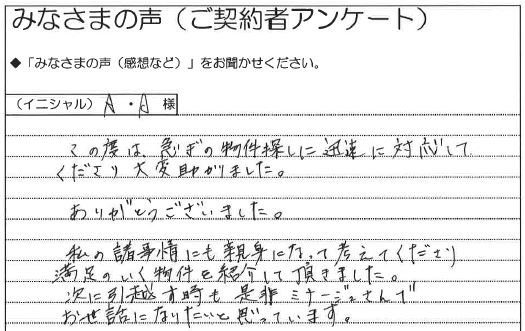 みなさまの声（ご契約者アンケート）
◆「みなさまの声（感想など）」をお聞かせください。
（イニシャル） A ・A 様
この度は、急ぎの物件探しに迅速に対応して
くださり大変助かりました。
ありがとうございました。
私の諸事情にも親身になって考えてくださり
満足のいく物件を紹介して頂きました。
次に引越す時も是非ミナージュさんで
お世話になりたいと思っています。